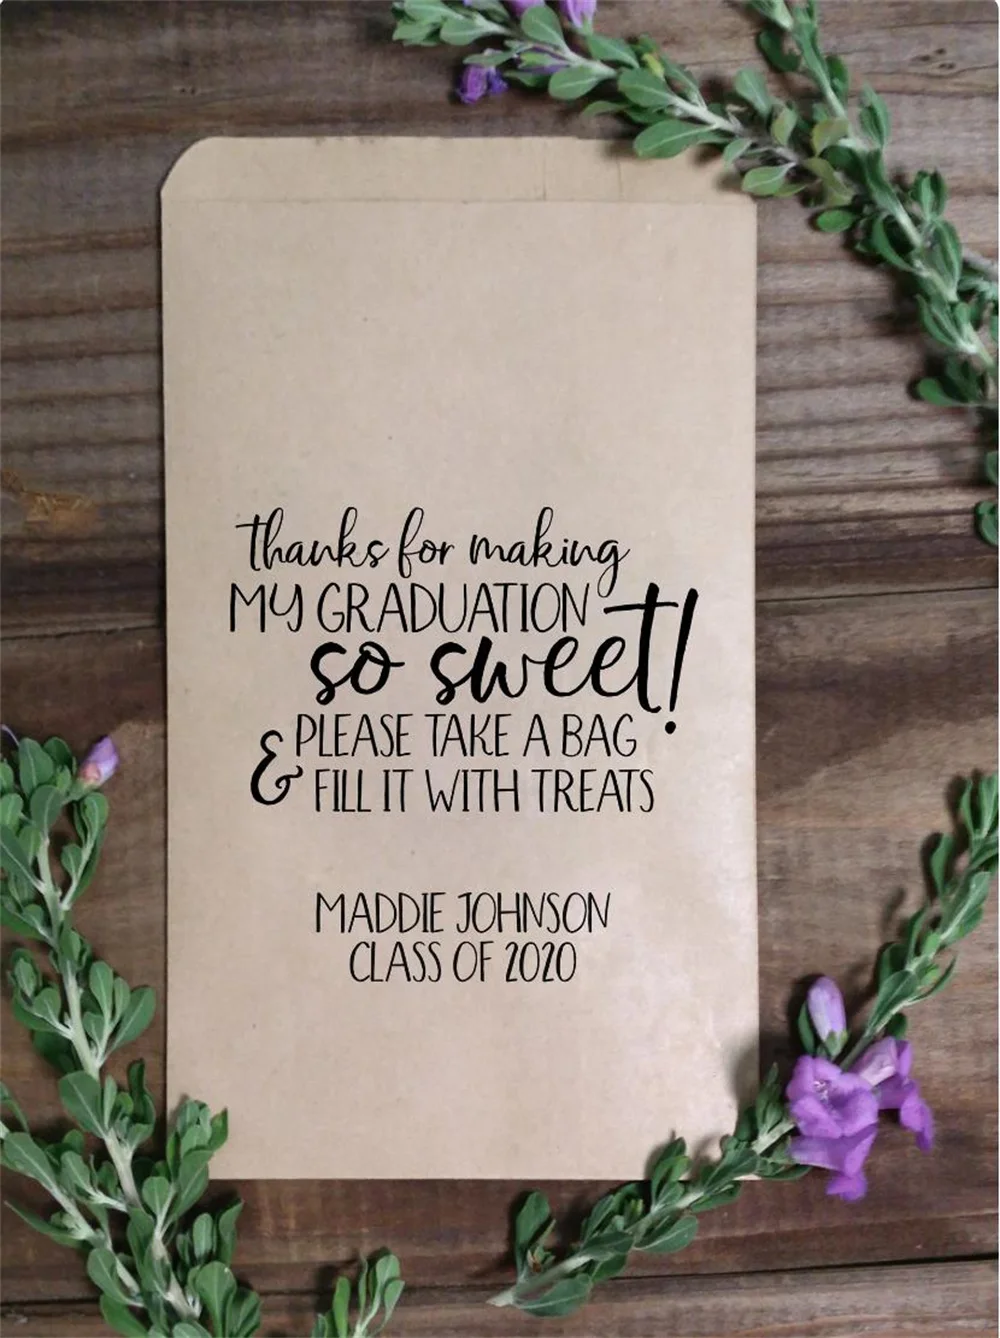 thanks for making
MY GRADUATION
so sweet!
PLEASE TAKE A BAG
& FILL IT WITH TREATS
MADDIE JOHNSON
CLASS OF 2020